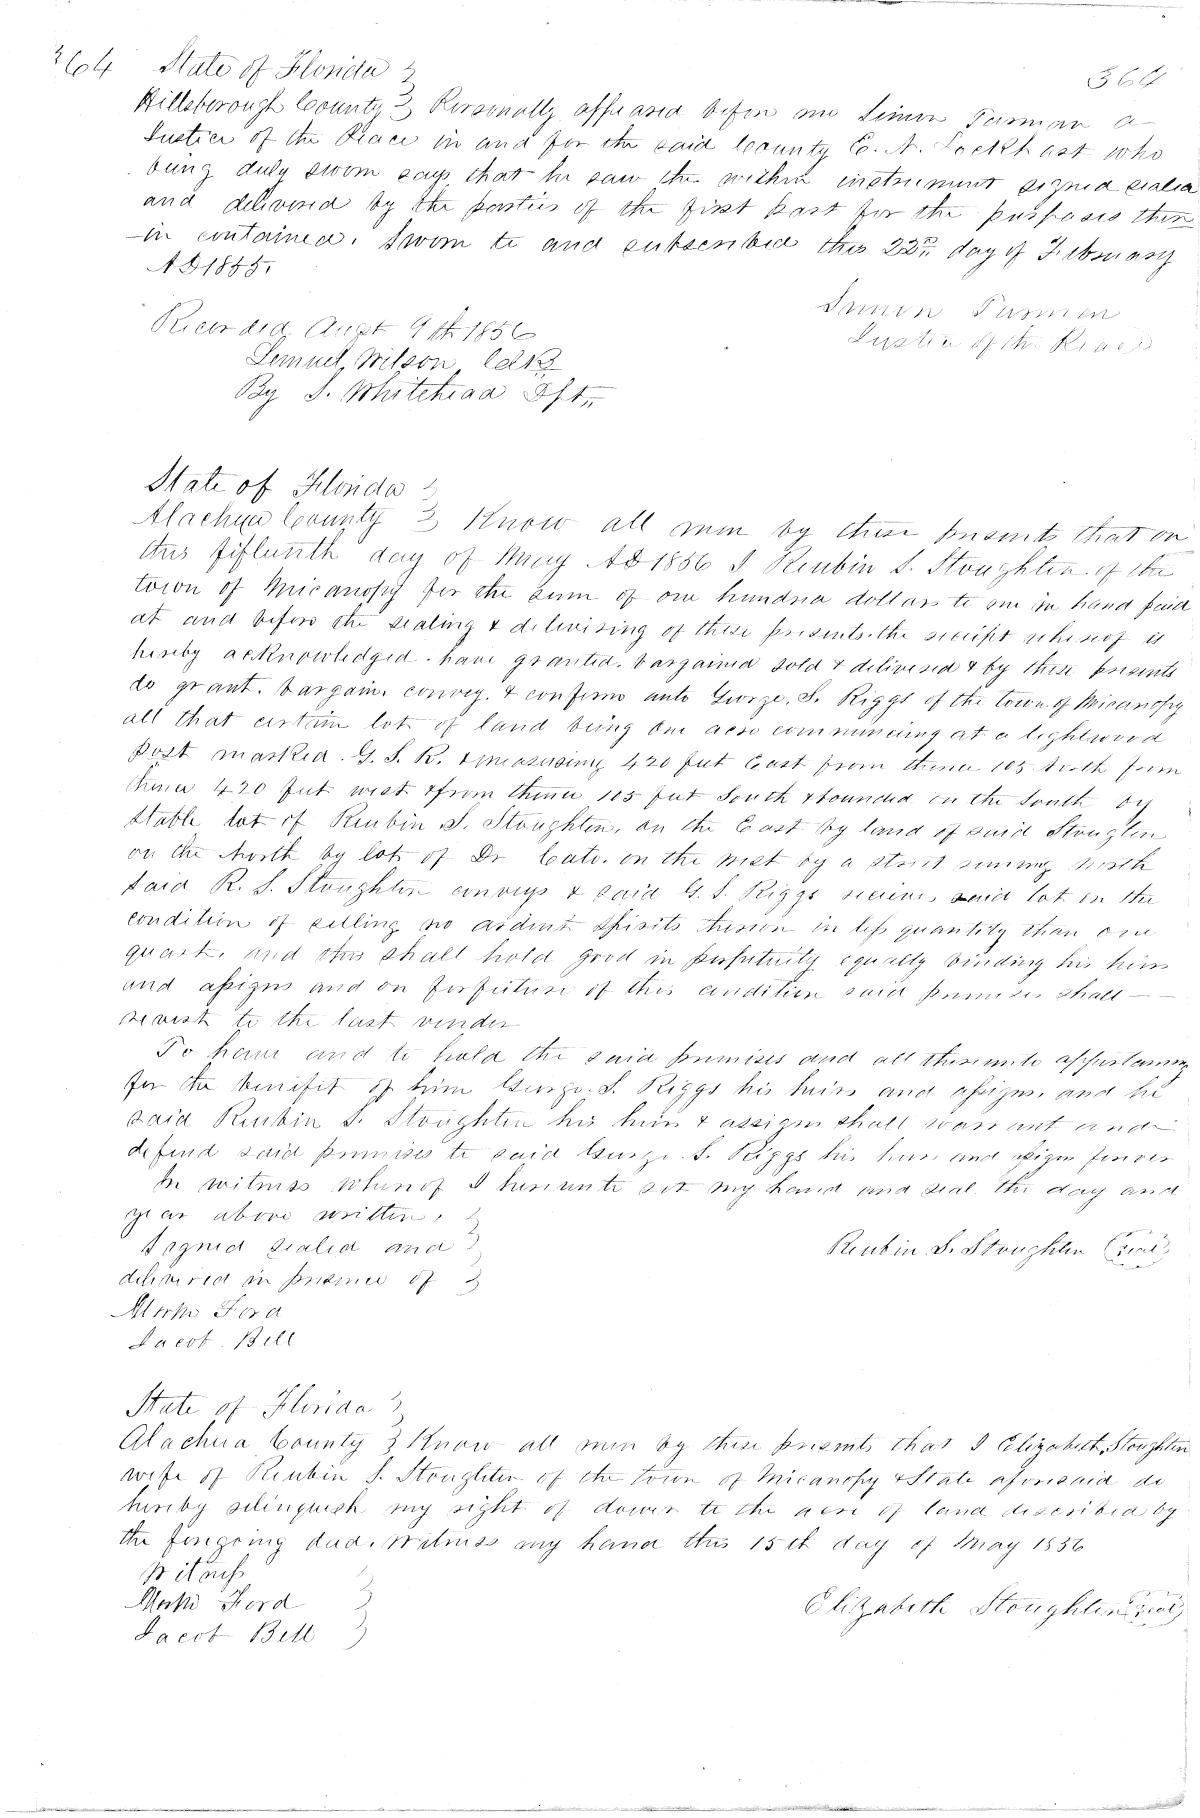 364 State of Florida } 364
Hillsborough County } Personally appeared before me Simon Turman a
Justice of the Peace in and for the said County E. A. Lockhart who
being duly sworn says that he saw the within instrument signed sealed
and delivered by the parties of the first part for the purposes there
-in contained. Sworn to and subscribed this 22nd day of February
AD 1855.
Simon Turman
Justice of the Peace
Recorded Augst 9th 1856
Lemuel Wilson Clk
By S. Whitehead Dpt,,
State of Florida }
Alachua County } Know all men by these presents that on
this fifteenth day of May AD 1856 I Reubin S. Stoughten of the
town of Micanopy for the sum of one hundred dollars to me in hand paid
at and before the sealing & delivising of these presents. the receipt whereof is
hereby acknowledged. have granted. bargained sold & delivered & by these presents
do grant. bargain. convey. & confirm unto George. S. Riggs of the town of Micanopy
all that certain lots of land being one acre commencing at a lightwood
post marked. G. S. R. & measuring 420 feet East from thence 105 North from
thence 420 feet west & from thence 105 feet South & bounded on the South by
stable lot of Reubin S. Stoughten. on the East by land of said Stougten
on the North by lots of Dr Cato. on the west by a street running north
said R. S. Stoughten conveys & said G. S. Riggs recieves said lot on the
condition of selling no ardent spirits thereon in less quantity than one
quart. and this shall hold good in perpetuity equally binding his heirs
and assigns and on forfeiture of this condition said premises shall —
revert to the last vender
To have and to hold the said premises and all thereunto appertaining
for the benifit of him George. S. Riggs his heirs and assigns. and he
said Reubin S. Stoughten his heirs & assigns shall warrant and
defend said premises to said George S. Riggs his heirs and assigns forever
In witness whereof I hereunto set my hand and seal the day and
year above written. }
Signed sealed and }
Reubin S. Stoughten (seal)
delivered in presence of }
Ford
Jacob Bell
State of Florida }
Alachua County } Know all men by these presents that I Elizabeth Stoughten
wife of Reubin S. Stoughten of the town of Micanopy & State aforesaid do
hereby relinquish my right of dower to the acre of land described by
the foregoing deed. Witness my hand this 15th day of May 1856
Witness
Ford }
Elizabeth Stoughten (seal)
Jacob Bell }